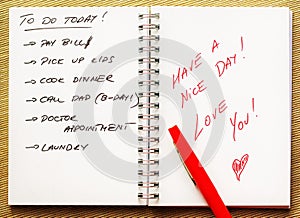 TO DO TODAY!
→ PAY BILL$
→ PICK UP KIDS
→ COOK DINNER
→ CALL DAD (B-DAY!)
→ DOCTOR
APPOINTMENT
→ LAUNDRY
HAVE A
NICE DAY!
LOVE YOU!